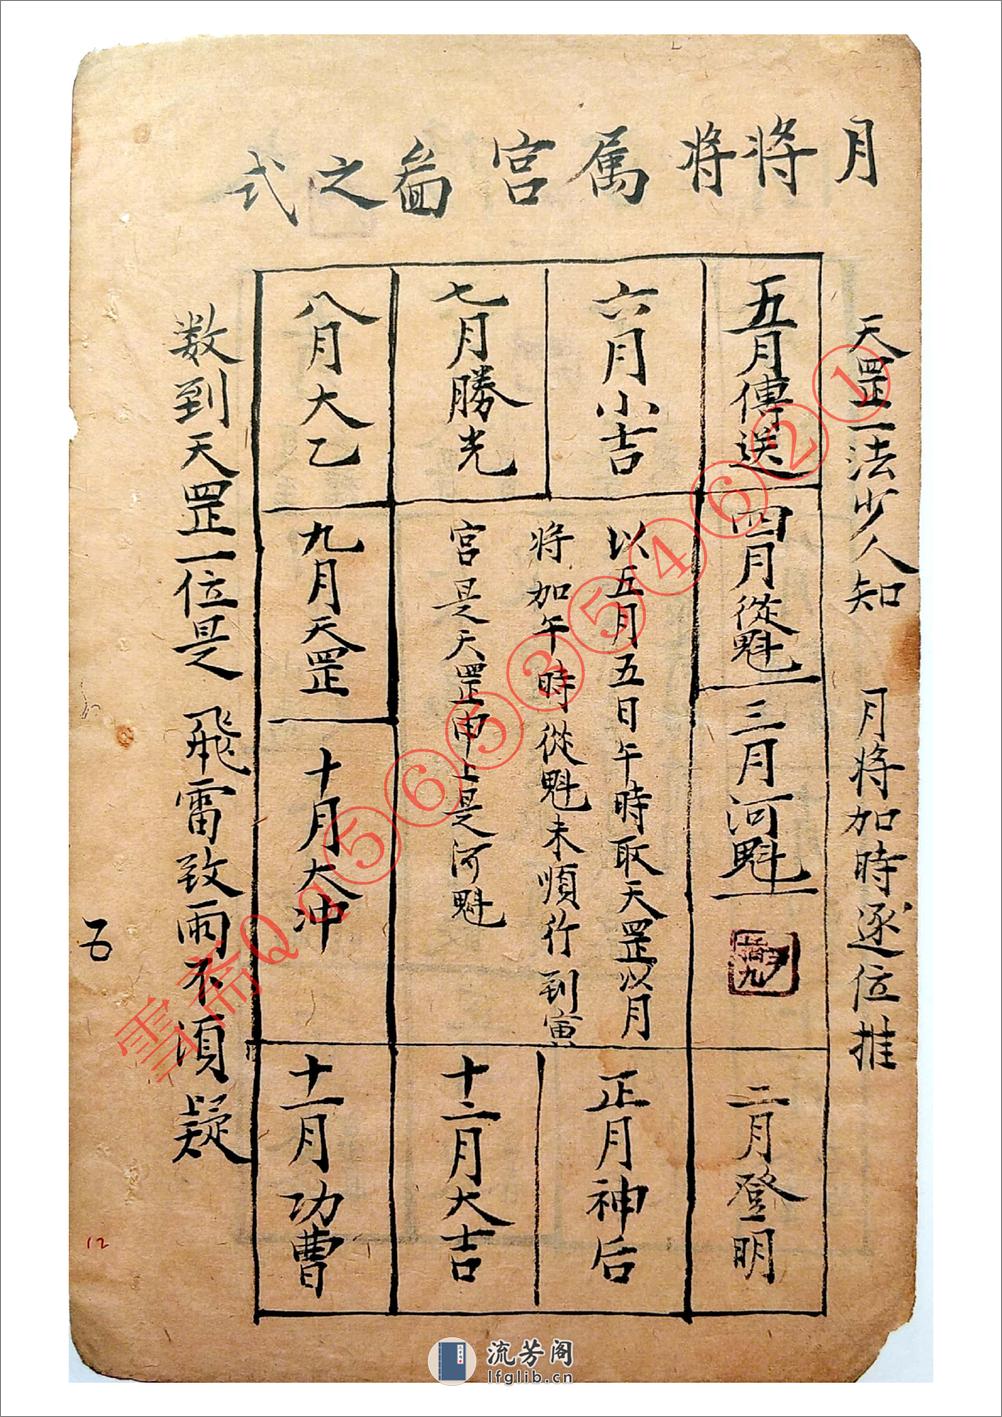 月將將属宮啚之式
天罡一法少人知 月將加時逐位推
五月傳送
六月小吉
七月勝光
八月大乙
四月從魁
三月河魁
以五月五日午時取天罡以月
將加午時從魁未順行到寅
宮是天罡申上是河魁
九月天罡
十月大冲
二月登明
正月神后
十二月大吉
十一月功曹
数到天罡一位是 飛雷致雨不須疑
五
12
雪斋Qq565354621
流芳阁
lfglib.cn